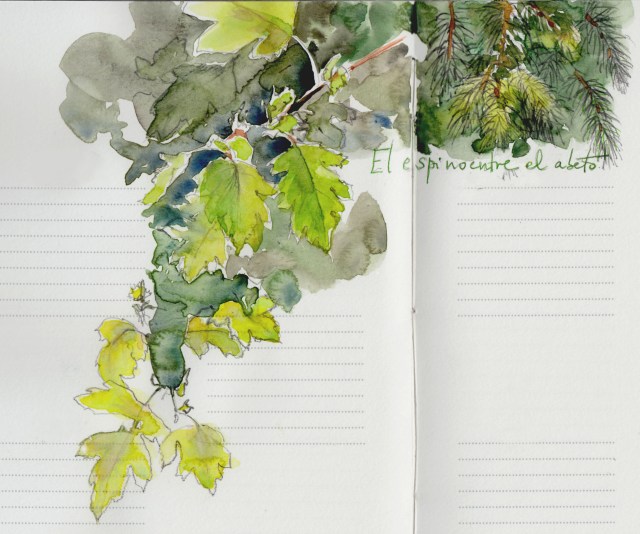 El espino entre el abeto